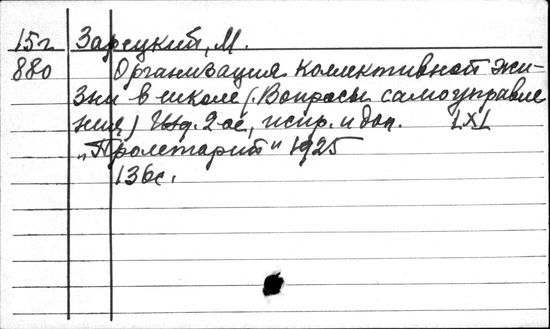 15г Зарецкий, М.
880 Организация коллективной жи-
зни в школе (Вопросы самоуправле
ния) Изд. 2-ое, испр. и доп. LXL
„Пролетарий" 1925
136с.